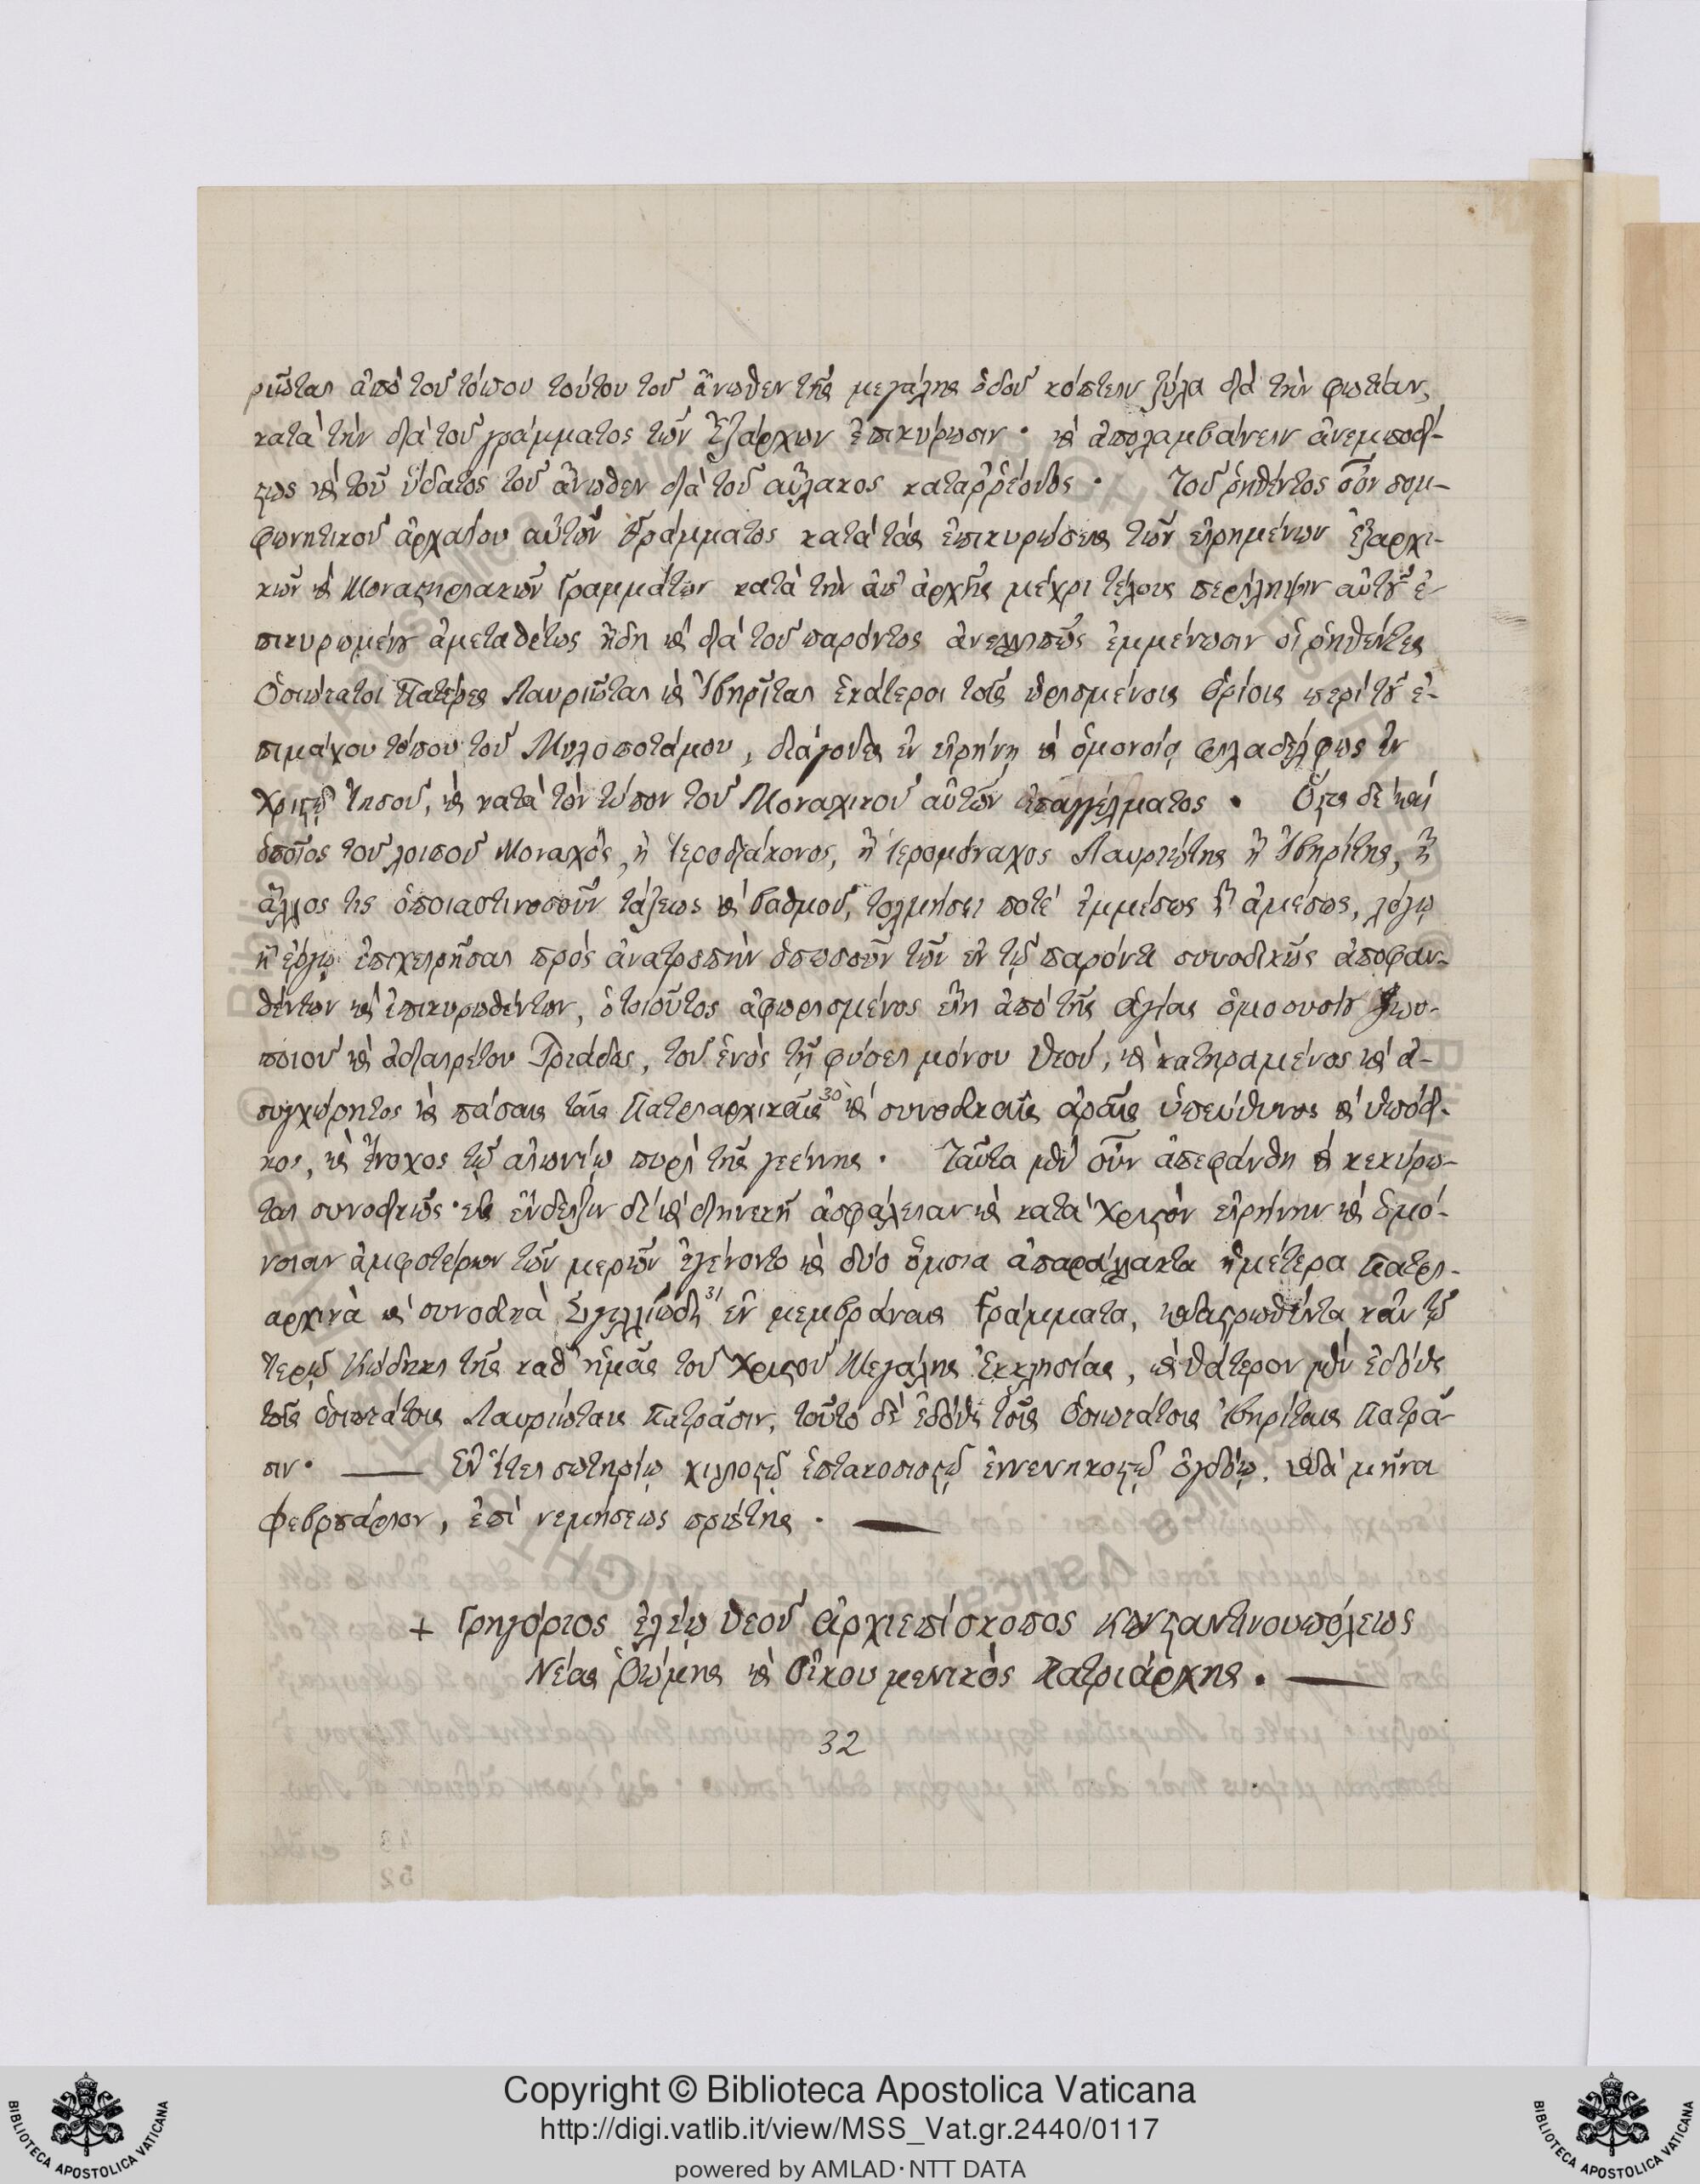 ριῶται ἀπὸ τοῦ τόπου τούτου τοῦ ἄνωθεν τῆς μεγάλης ὁδοῦ κόπτειν ξύλα διὰ τὴν φωτίαν,
κατὰ τὴν διὰ τοῦ γράμματος τῶν Ἐξάρχων ἐπικύρωσιν· καὶ ἀπολαμβάνειν ἀνεμποδί-
στως καὶ τοῦ ὕδατος τοῦ ἄνωθεν διὰ τοῦ αὔλακος καταῤῥέοντος· Τοῦ ῥηθέντος οὖν συμ-
φωνητικοῦ ἀρχαίου αὐτῶν Γράμματος κατὰ τὰς ἐπικυρώσεις τῶν εἰρημένων Ἐξαρχι-
κῶν καὶ Μοναστηριακῶν Γραμμάτων κατὰ τὴν ἀπ' ἀρχῆς μέχρι τέλους περίληψιν αὐτοῦ ἐ-
πικυρωμένου ἀμεταθέτως ἤδη καὶ διὰ τοῦ παρόντος ἀνελλιπῶς ἐμμένωσιν οἱ ῥηθέντες
Ὁσιώτατοι Πατέρες Λαυριῶται καὶ Ἰβηρῖται ἑκάτεροι τοῖς ὡρισμένοις ὁρίοις περὶ τοῦ ἐ-
πιμάχου τόπου τοῦ Μυλοποτάμου, διάγοντες ἐν εἰρήνῃ καὶ ὁμονοίᾳ φιλαδέλφως ἐν
Χριστῷ Ἰησοῦ, καὶ κατὰ τὸν τύπον τοῦ Μοναχικοῦ αὐτῶν ἐπαγγέλματος· Ὅστις δὲ καὶ
ὁποῖος τοῦ λοιποῦ Μοναχὸς, ἢ Ἱεροδιάκονος, ἢ Ἱερομόναχος Λαυριώτης ἢ Ἰβηρίτης, ἢ
ἄλλος τις ὁποιαστινοσοῦν τάξεως καὶ βαθμοῦ, τολμήσει ποτὲ ἐμμέσως ἢ ἀμέσως, λόγῳ
ἢ ἔργῳ ἐπιχειρῆσαι πρὸς ἀνατροπὴν ὁπωσοῦν τῶν ἐν τῷ παρόντι συνοδικῶς ἀποφαν-
θέντων καὶ ἐπικυρωθέντων, ὁ τοιοῦτος ἀφωρισμένος εἴη ἀπὸ τῆς ἁγίας ὁμοουσίου ζωο-
ποιοῦ καὶ ἀδιαιρέτου Τριάδος, τοῦ ἑνὸς τῇ φύσει μόνου Θεοῦ, καὶ κατηραμένος καὶ ἀ-
συγχώρητος καὶ πάσαις ταῖς Πατριαρχικαῖς³⁰ καὶ συνοδικαῖς ἀραῖς ὑπεύθυνος καὶ ὑπόδι-
κος, καὶ ἔνοχος τῷ αἰωνίῳ πυρὶ τῆς γεέννης· Ταῦτα μὲν οὖν ἀπεφάνθη καὶ κεκύρω-
ται συνοδικῶς· εἰς ἔνδειξιν δὲ καὶ διηνεκῆ ἀσφάλειαν καὶ κατὰ Χριστὸν εἰρήνην καὶ ὁμό-
νοιαν ἀμφοτέρων τῶν μερῶν ἐγένοντο καὶ δύο ὅμοια ἀπαράλλακτα ἡμέτερα Πατρι-
αρχικὰ καὶ συνοδικὰ Σιγιλλιώδη³¹ ἐν μεμβράναις Γράμματα, καταστρωθέντα κἀν τῷ
Ἱερῷ Κώδηκι τῆς καθ' ἡμᾶς τοῦ Χριστοῦ Μεγάλης Ἐκκλησίας, καὶ θάτερον μὲν ἐδόθη
τοῖς ὁσιωτάτοις Λαυριώταις Πατράσιν, τοῦτο δὲ ἐδόθη τοῖς ὁσιωτάτοις Ἰβηρίταις Πατρά-
σιν· —— Ἐν ἔτει σωτηρίῳ χιλιοστῷ ἑπτακοσιοστῷ ἐννενηκοστῷ ὀγδόῳ, κατὰ μῆνα
Φεβρουάριον, ἐπὶ νεμήσεως πρώτης· ——
+ Γρηγόριος ἐλέῳ Θεοῦ ἀρχιεπίσκοπος Κωνσταντινουπόλεως
Νέας Ῥώμης καὶ Οἰκουμενικὸς Πατριάρχης. ——
32
Copyright © Biblioteca Apostolica Vaticana
http://digi.vatlib.it/view/MSS_Vat.gr.2440/0117
powered by AMLAD·NTT DATA
BIBLIOTECA APOSTOLICA VATICANA
BIBLIOTECA APOSTOLICA VATICANA